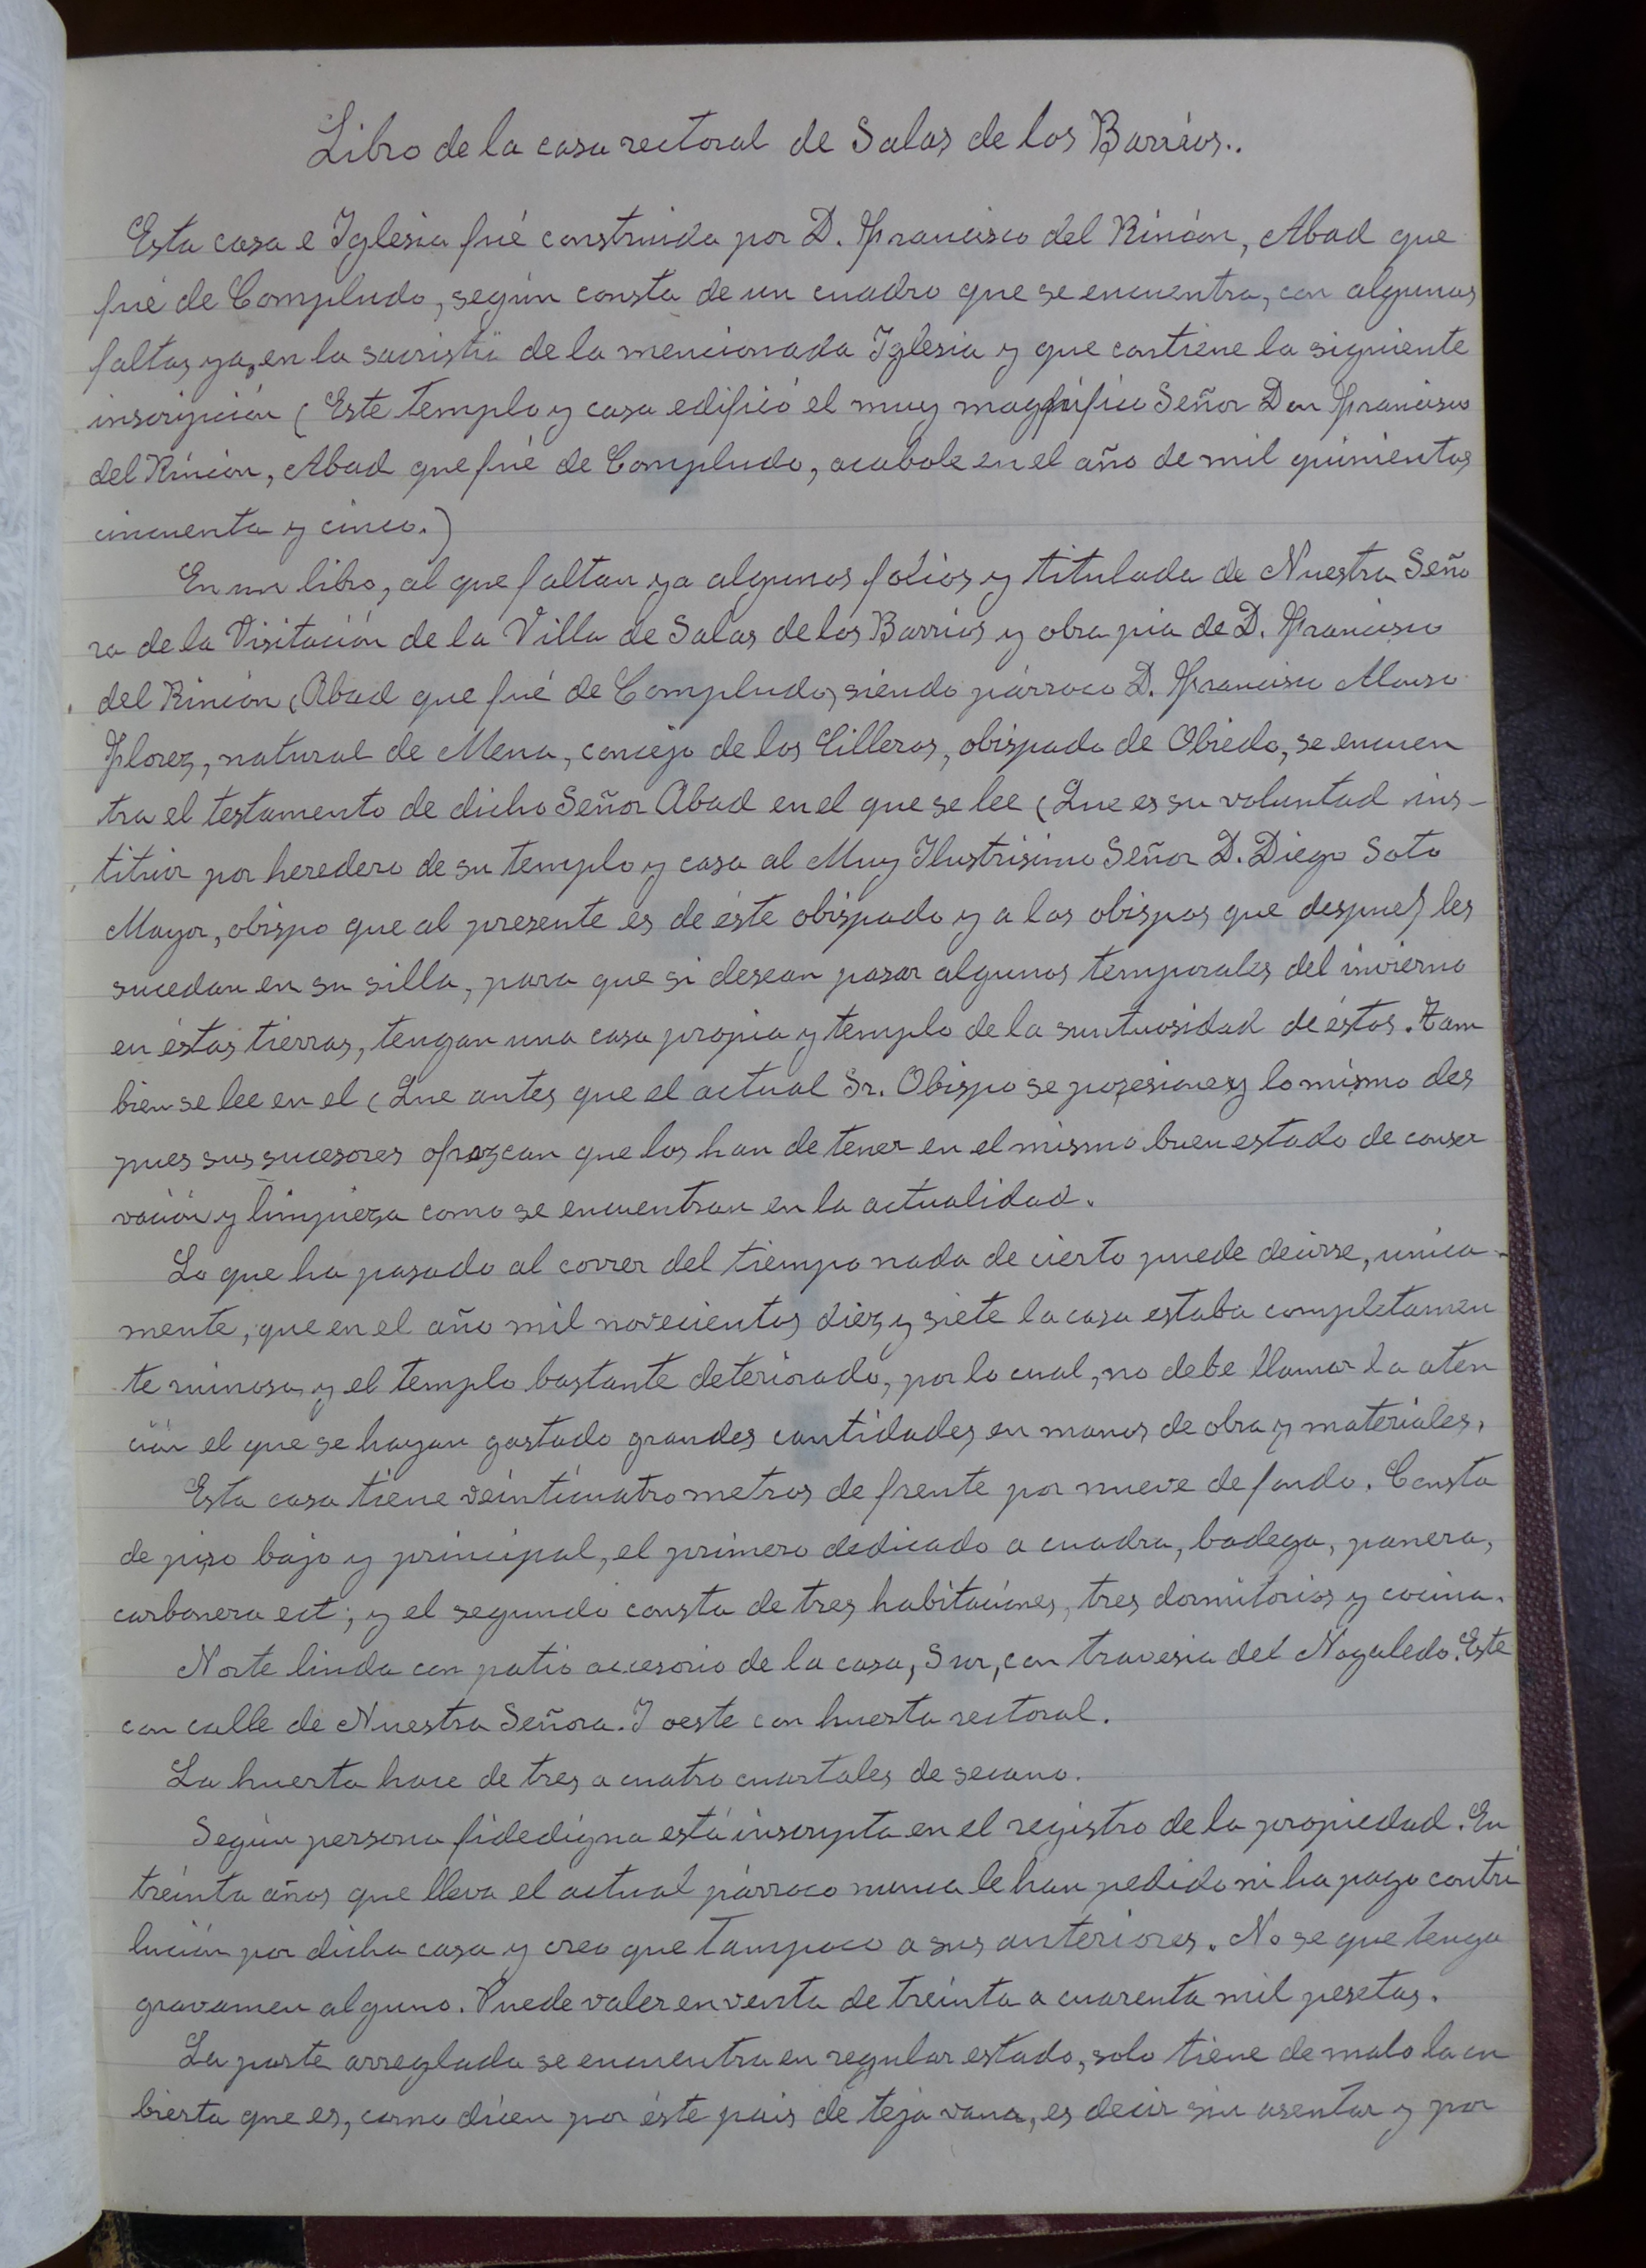 Libro de la casa rectoral de Salas de los Barrios..
Esta casa e Iglesia fué construida por D. Francisco del Rincón, Abad que
fué de Compludo, según consta de un cuadro que se encuentra, con algunas
faltas ya, en la sacristía de la mencionada Iglesia y que contiene la siguiente
inscripción (Este templo y casa edificó el muy magnífico Señor Don Francisco
del Rincón, Abad que fué de Compludo, acabole en el año de mil quinientos
cincuenta y cinco.)
En un libro, al que faltan ya algunos folios y titulada de Nuestra Seño
ra de la Visitación de la Villa de Salas de los Barrios y obra pia de D. Francisco
del Rincón (Abad que fué de Compludo) siendo párroco D. Francisco Alonso
Florez, natural de Mena, concejo de los Cilleros, obispado de Obiedo, se encuen
tra el testamento de dicho Señor Abad en el que se lee (Que es su voluntad ins-
tituir por heredero de su templo y casa al Muy Ilustrisimo Señor D. Diego Soto
Mayor, obispo que al presente es de éste obispado y a los obispos que despues les
sucedan en su silla, para que si desean pasar algunos temporales del invierno
en éstas tierras, tengan una casa propia y templo de la suntuosidad de éstos. Tam
bien se lee en el (Que antes que el actual Sr. Obispo se posesione y lo mismo des
pues sus sucesores ofrezcan que los han de tener en el mismo buen estado de conser
vación y limpieza como se encuentran en la actualidad.
Lo que ha pasado al correr del tiempo nada de cierto puede decirse, unica-
mente, que en el año mil novecientos diez y siete la casa estaba completamen
te ruinosa, y el templo bastante deteriorado, por lo cual, no debe llamar la aten
ción el que se hayan gastado grandes cantidades en manos de obra y materiales.
Esta casa tiene veinticuatro metros de frente por nueve de fondo. Consta
de piso bajo y principal, el primero dedicado a cuadra, bodega, panera,
carbonera ect; y el segundo consta de tres habitaciones, tres dormitorios y cocina.
Norte linda con patio accesorio de la casa, Sur, con travesia del Nogaledo. Este
con calle de Nuestra Señora. I oeste con huerta rectoral.
La huerta hace de tres a cuatro cuartales de secano.
Según persona fidedigna está inscripta en el registro de la propiedad. En
treinta años que lleva el actual párroco nunca le han pedido ni ha pago contri
bución por dicha casa y creo que tampoco a sus anteriores. No se que tenga
gravamen alguno. Puede valer en venta de treinta a cuarenta mil pesetas.
La parte arreglada se encuentra en regular estado, solo tiene de malo la cu
bierta que es, como dicen por éste pais de teja vana, es decir sin asentar y por